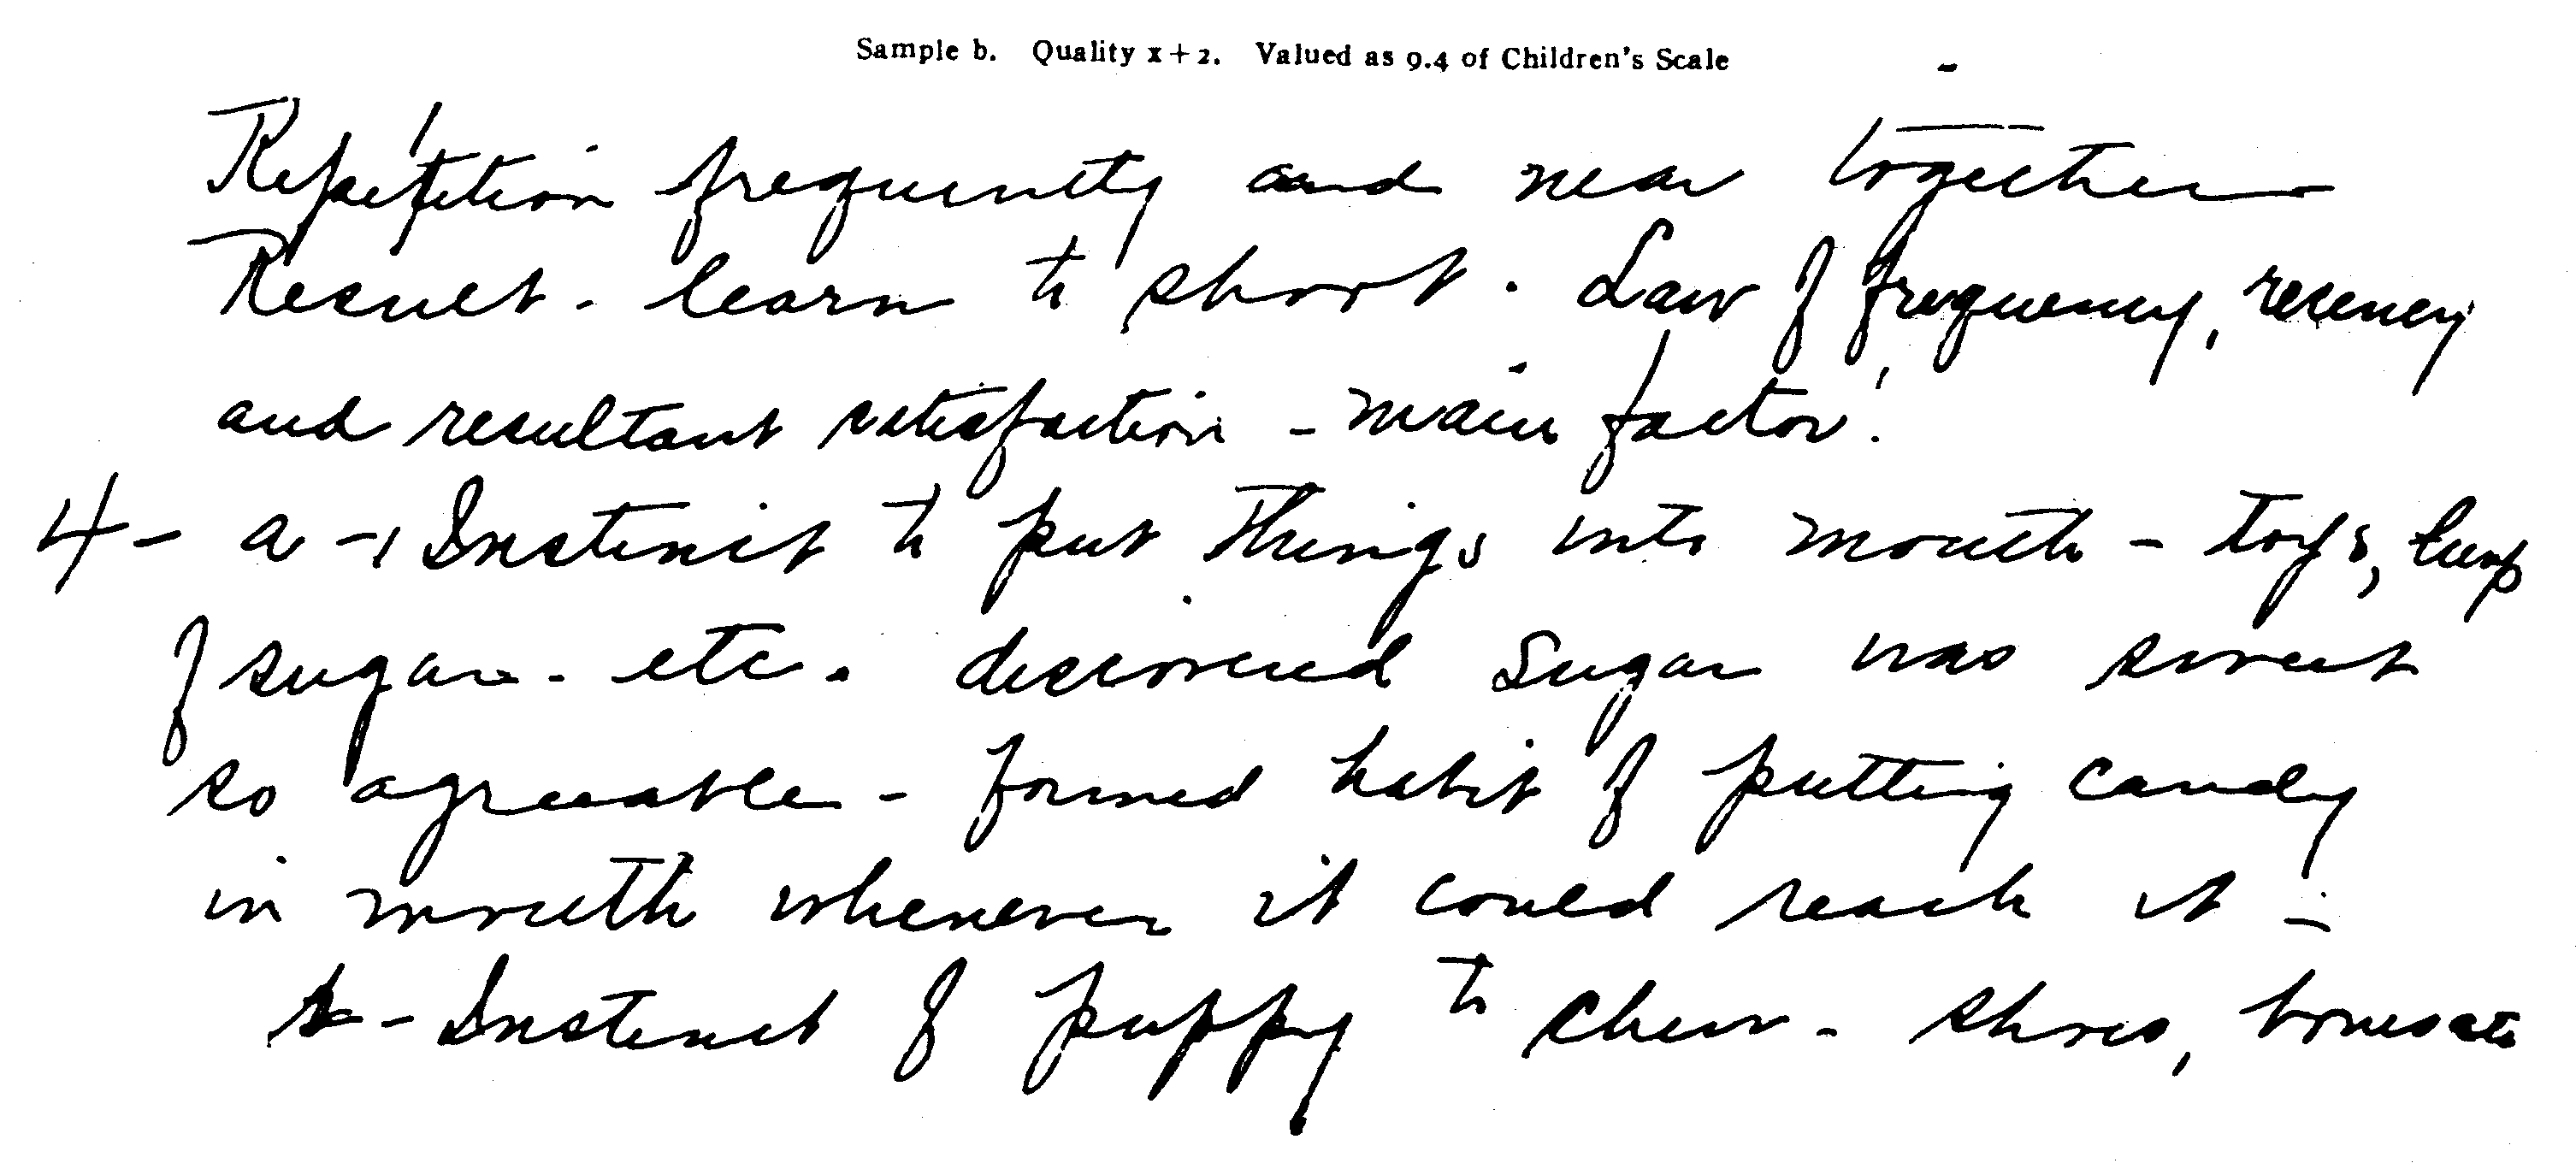 Sample b. Quality x + 2. Valued as 9.4 of Children's Scale
Repetition frequently and near together
Result - learn to shoot. Law of frequency, recency
and resultant satisfaction - main factor.
4 - a - Instinct to put things into mouth - toys, lump
of sugar - etc. discovered sugar was sweet
so agreeable - formed habit of putting candy
in mouth whenever it could reach it -
b - Instinct of puppy to chew - shoes, bones etc